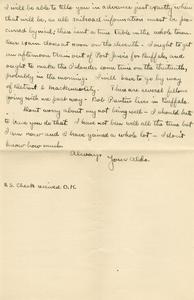 I will be able to tell you in advance just exactly when
that will be, as all railroad information must be pro-
cured beyond; there isn't a time table in the whole town.
camp comes down soon on the eleventh - I ought to get
an afternoon train out of Port Jervis for Buffalo, and
ought to make the Islander come on the thirteenth,
probably in the morning. I will have to go by way
of Detroit & Mackinaw City. There are several fellows
going with me part way - Bob Puntin lives in Buffalo.
Don't worry about my not being well - I should hate
to have you do that. I have not been well all the time but
I am now and I have gained a whole lot - I don't
know how much.
Always
Your Aldo.
P.S. Check received O.K.